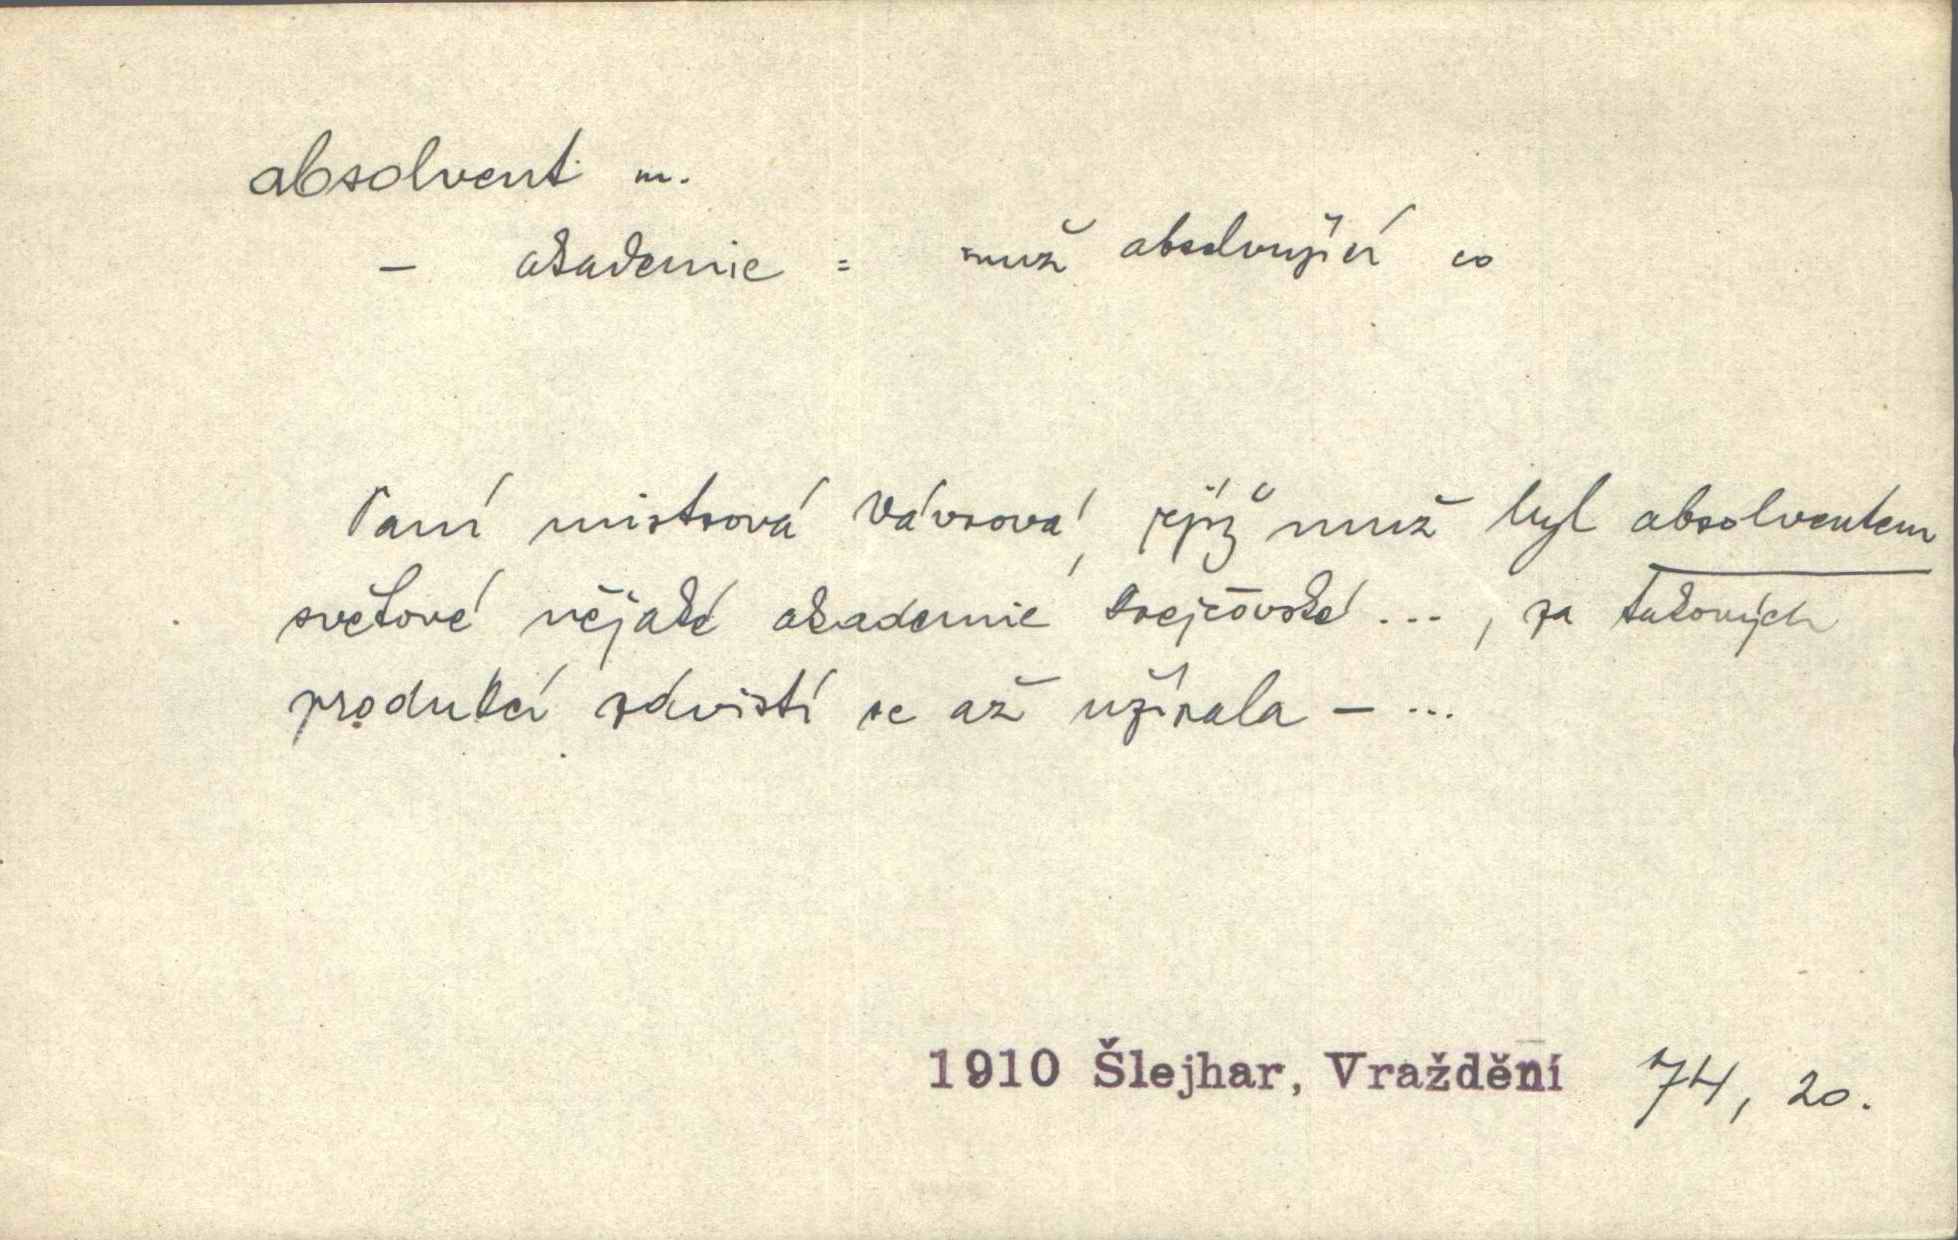 absolvent m.
– akademie = muž absolvující co
Paní mistrová Vávrová, jejíž muž byl absolventem
světové nějaké akademie krejčovské ..., za takových
produkcí závistí se až užírala – ...
1910 Šlejhar, Vraždění 74, 20.